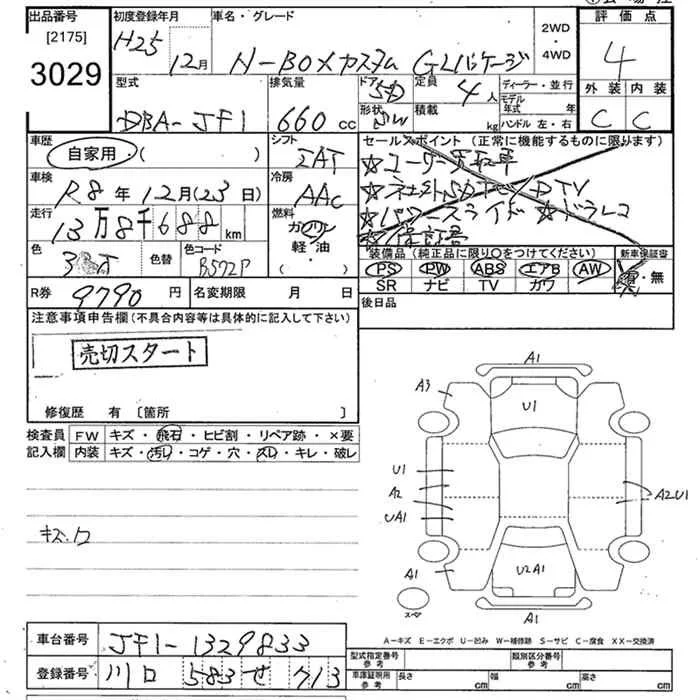 出品番号 初度登録年月 車名・グレード 2WD・4WD 評価点
[2175] 3029 H25 12月 N-BOXカスタム GLパッケージ 4
型式 排気量 ドア 5D 定員 4人 ディーラー・並行 外装 内装
DBA-JF1 660cc 形状 積載 kg モデル年式 年 ハンドル 左・右 C C
車歴 自家用・( ) シフト セールスポイント (正常に機能するものに限ります)
車検 R8年12月(23日) 冷房 AAC
☆パワースライド ☆ドラレコ
走行 13万8千688km 燃料 ガソリン 軽・油・( )
色 色替 色コード B572P 装備品 (純正品に限り○をつけてください) 新車保証書
PS PW ABS エアB AW 有・無
SR ナビ TV カワ
R券 9790円 名変期限 月 日 後日品
注意事項申告欄(不具合内容等は具体的に記入して下さい)
売切スタート
修復歴 有 [箇所 ]
検査員記入欄 FW キズ・飛石・ヒビ割・リペア跡・×要
内装 キズ・汚レ・コゲ・穴・スレ・キレ・破レ
キズ.ワ
A1
A3 U1
U1
A2 A2U1
UA1
A1 U2A1 A1
A1
A-キズ E-エクボ U-凹み W-補修跡 S-サビ C-腐食 XX-交換済
車台番号 JF1-1329833
型式指定番号 参考 類別区分番号 参考
登録番号 川口 583 せ 713
車庫証明用 参考 長さ cm 幅 cm 高さ cm